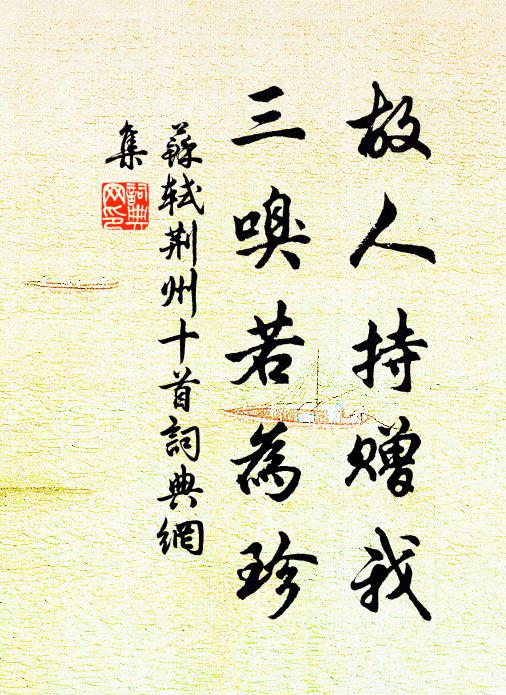 故人持贈我
三嗅若為珍
蘇軾荆州十首詞典網
集
詞典网印